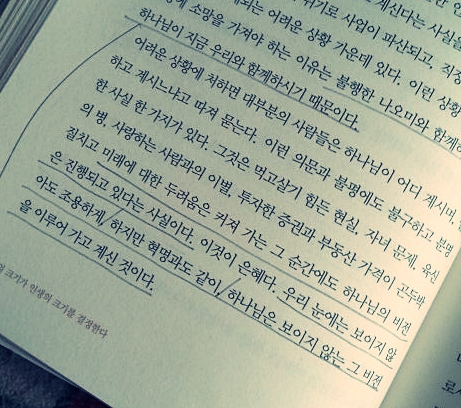 위기로 사업이 파산되고, 직장
되는 어려운 상황 가운데 있다. 이런 상황
에 소망을 가져야 하는 이유는 불행한 나오미와 함께하
하나님이 지금 우리와 함께하시기 때문이다.
어려운 상황에 처하면 대부분의 사람들은 하나님이 어디 계시며,
하고 계시느냐고 따져 묻는다. 이런 의문과 불평에도 불구하고, 분명
한 사실 한 가지가 있다. 그것은 먹고살기 힘든 현실, 자녀 문제, 육신
의 병, 사랑하는 사람과의 이별, 투자한 증권과 부동산 가격이 곤두박
질치고 미래에 대한 두려움은 커져 가는 그 순간에도 하나님의 비전
은 진행되고 있다는 사실이다. 이것이 은혜다. 우리 눈에는 보이지 않
아도 조용하게, 하지만 혁명과도 같이, 하나님은 보이지 않는 그 비전
을 이루어 가고 계신 것이다.
크기가 인생의 크기를 결정한다